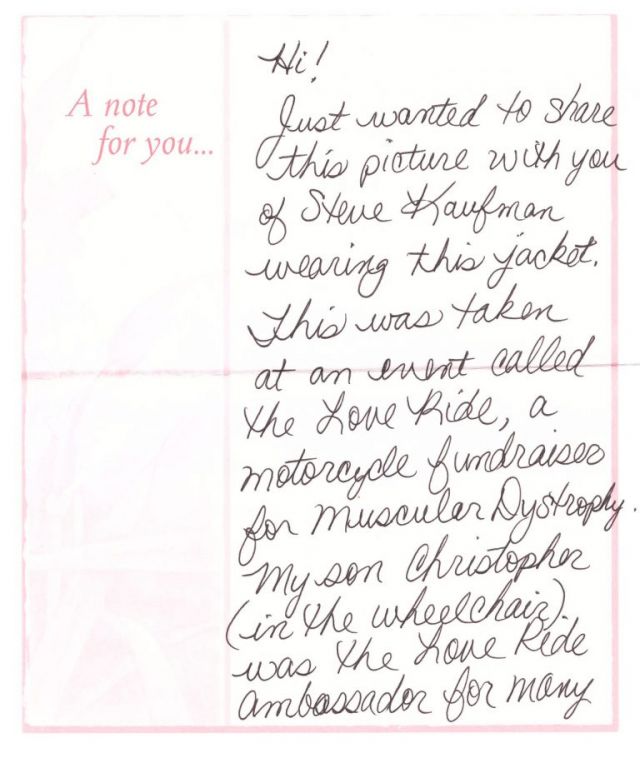 A note
for you...
Hi!
Just wanted to share
this picture with you
of Steve Kaufman
wearing this jacket.
This was taken
at an event called
the Love Ride, a
motorcycle fundraiser
for Muscular Dystrophy.
My son Christopher
(in the wheelchair)
was the Love Ride
ambassador for many